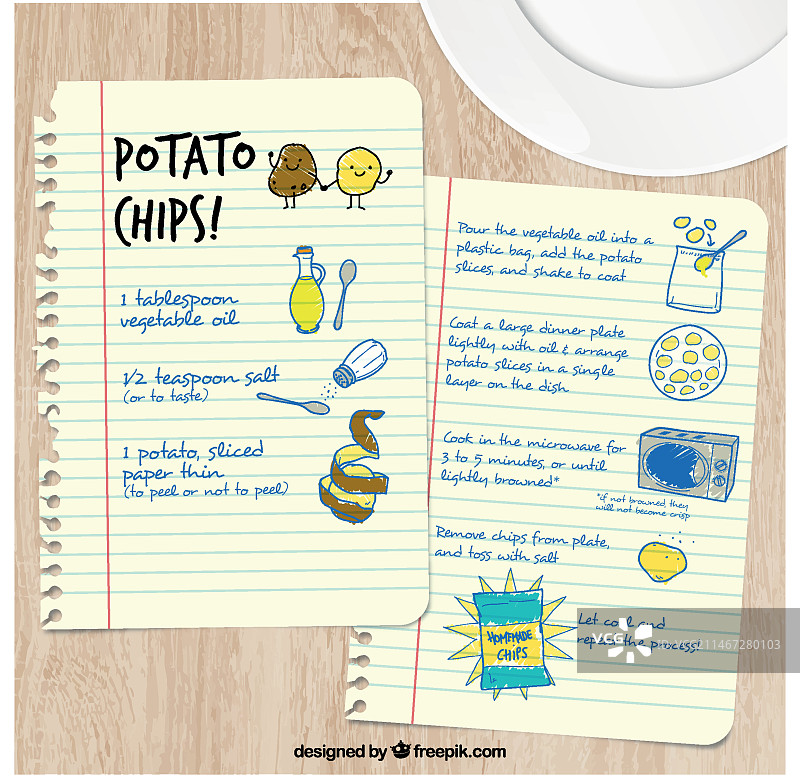 POTATO
CHIPS!
1 tablespoon
vegetable oil
1/2 teaspoon salt
(or to taste)
1 potato, sliced
paper thin
(to peel or not to peel)
Pour the vegetable oil into a
plastic bag, add the potato
slices, and shake to coat
Coat a large dinner plate
lightly with oil & arrange
potato slices in a single
layer on the dish
Cook in the microwave for
3 to 5 minutes, or until
lightly browned*
*if not browned, they
will not become crisp
Remove chips from plate,
and toss with salt
HOMEMADE
CHIPS
Let cool and
repeat the process!
VCG
designed by freepik.com